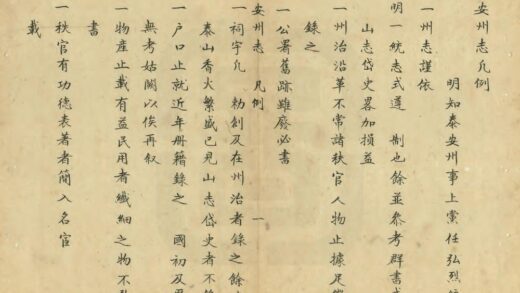 安州志凡例
明知泰安州事上黨任弘烈
一州志謹依
明一統志式遵 制也餘並參考群書
山志岱史畧加損益
一州治沿革不常諸秩官人物止據足
錄之
一公署舊跡雖廢必書
安州志 凡例 一
一祠宇凡 勅創及在州治者錄之餘
泰山香火繁盛已見山志岱史者不
一户口止就近年册籍錄之 國初及
無考姑闕以俟再叙
一物產止載有益民用者纖細之物不
書
一秩官有功德表著者簡入名宦
載